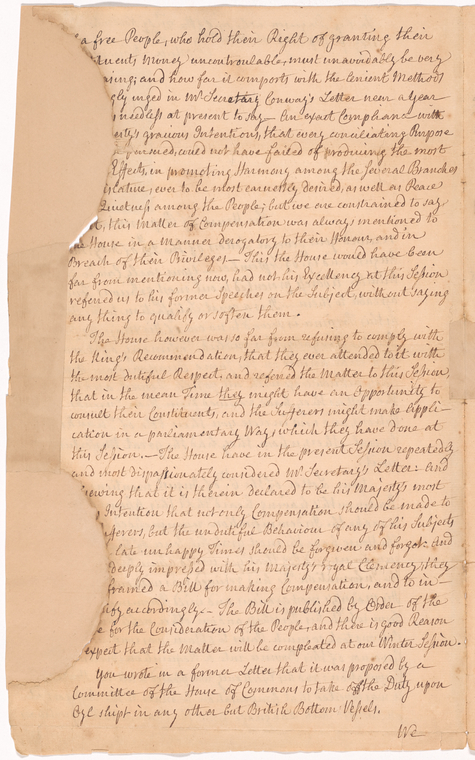 a free People, who hold their Right of granting their
Money uncontroulable, must unavoidably be very
; and how far it comports with the lenient Methods
urged in Mr. Secretary Conway's Letter near a Year
needless at present to say — An exact Compliance with
gracious Intentions, that every conciliating Purpose
could not have failed of producing the most
Effects, in promoting Harmony among the several Branches
ever to be most earnestly desired, as well as Peace
Quietness among the People; but we are constrained to say
this matter of Compensation was always mentioned to
House in a Manner derogatory to their Honour, and in
Breach of their Priviledges — This the House would have been
far from mentioning now, had not his Excellency at this Session
referred us to his former Speeches on the Subject, without saying
any thing to qualify or soften them.
The House however was so far from refusing to comply with
the King's Recommendation, that they ever attended to it with
the most dutiful Respect, and referred the Matter to this Session,
that in the mean Time they might have an Opportunity to
consult their Constituents, and the Sufferers might make Appli-
cation in a parliamentary Way, which they have done at
this Session. — The House have in the present Session repeatedly
and most dispassionately considered Mr. Secretary's Letter: And
that it is therein declared to be his Majesty's most
Intention that not only Compensation should be made to
but the undutiful Behaviour of any of his Subjects
late unhappy Times should be forgiven and forgot: And
deeply impressed with his Majesty's royal Clemency, they
framed a Bill for making Compensation, and to in-
accordingly — The Bill is published by Order of the
for the Consideration of the People, and there is good Reason
expect that the Matter will be compleated at our Winter Session.
You wrote in a former Letter that it was proposed by a
Committee of the House of Commons to take off the Duty upon
Oyl shipt in any other but British Bottom Vessels.
We